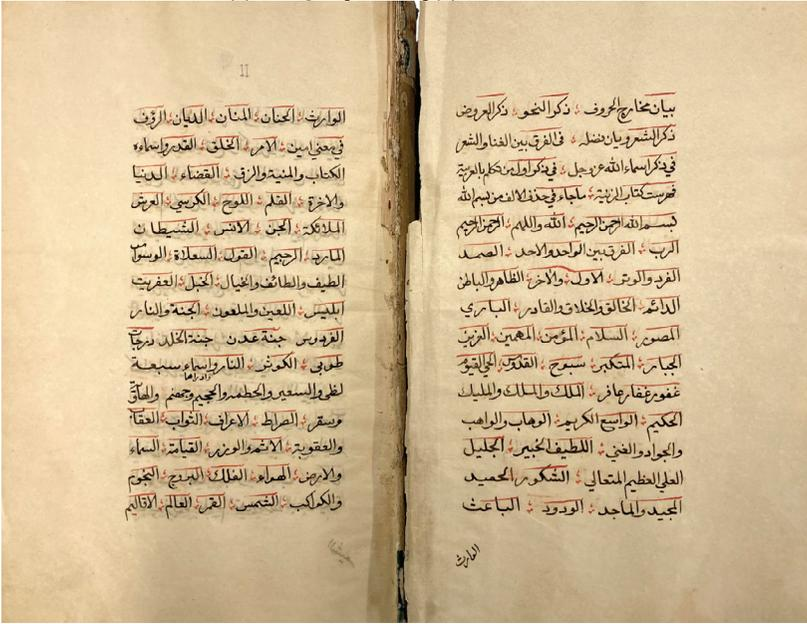 بيان مخارج الحروف ؛ ذكر النحو ؛ ذكر العروض
ذكر الشعر وبيان فضله ؛ في الفرق بين الغنا والشعر
في ذكر اسماء الله عز وجل ؛ في ذكر اول من تكلم بالعربية
فهرست كتاب الزينة ؛ ما جاء في حذف الالف من بسم الله
بسم الله الرحمن الرحيم ؛ الله واللهم ؛ الرحمن الرحيم
الرب ؛ الفرق بين الواحد والاحد ؛ الصمد
الفرد والوتر ؛ الاول والآخر ؛ الظاهر والباطن
الدائم ؛ الخالق والخلاق والقادر ؛ الباري
المصور ؛ السلام ؛ المؤمن ؛ المهيمن ؛ العزيز
الجبار ؛ المتكبر ؛ سبوح ؛ القدوس ؛ الحي القيوم
غفور غفار غافر ؛ الملك والملك والمليك
الحكيم ؛ الواسع الكريم ؛ الوهاب والواهب
والجواد والغني ؛ اللطيف الخبير ؛ الجليل
العلي العظيم المتعالي ؛ الشكور الحميد
المجيد والماجد ؛ الودود ؛ الباعث
الوارث
11
الوارث ؛ الحنان ؛ المنان ؛ الديان ؛ الرؤف
في معنى امين ؛ الامر ؛ الخلق ؛ القدر واسماءه
الكتاب والمنية والرزق ؛ القضاء ؛ الدنيا
والاخرة ؛ القلم ؛ اللوح ؛ الكرسي ؛ العرش
الملائكة ؛ الجن ؛ الانس ؛ الشيطان
المارد ؛ الرجيم ؛ القول ؛ السعلاة ؛ الوسواس
الطيف والطائف والخيال ؛ الخبل ؛ العفريت
ابليس ؛ اللعين والملعون ؛ الجنة والنار
الفردوس جنة عدن جنة الخلد درجات
طوبى ؛ الكوثر ؛ النار واسماء سبعة
لظى والسعير والحطمه والجحيم وجهنم
وسقر ؛ الصراط ؛ الاعراف ؛ الثواب ؛ العقاب
والعقوبة ؛ الاثم والوزر ؛ القيامة ؛ السماء
والارض ؛ الهواء ؛ الفلك ؛ البروج ؛ النجوم
والكواكب ؛ الشمس ؛ القمر ؛ العالم ؛ الاقاليم